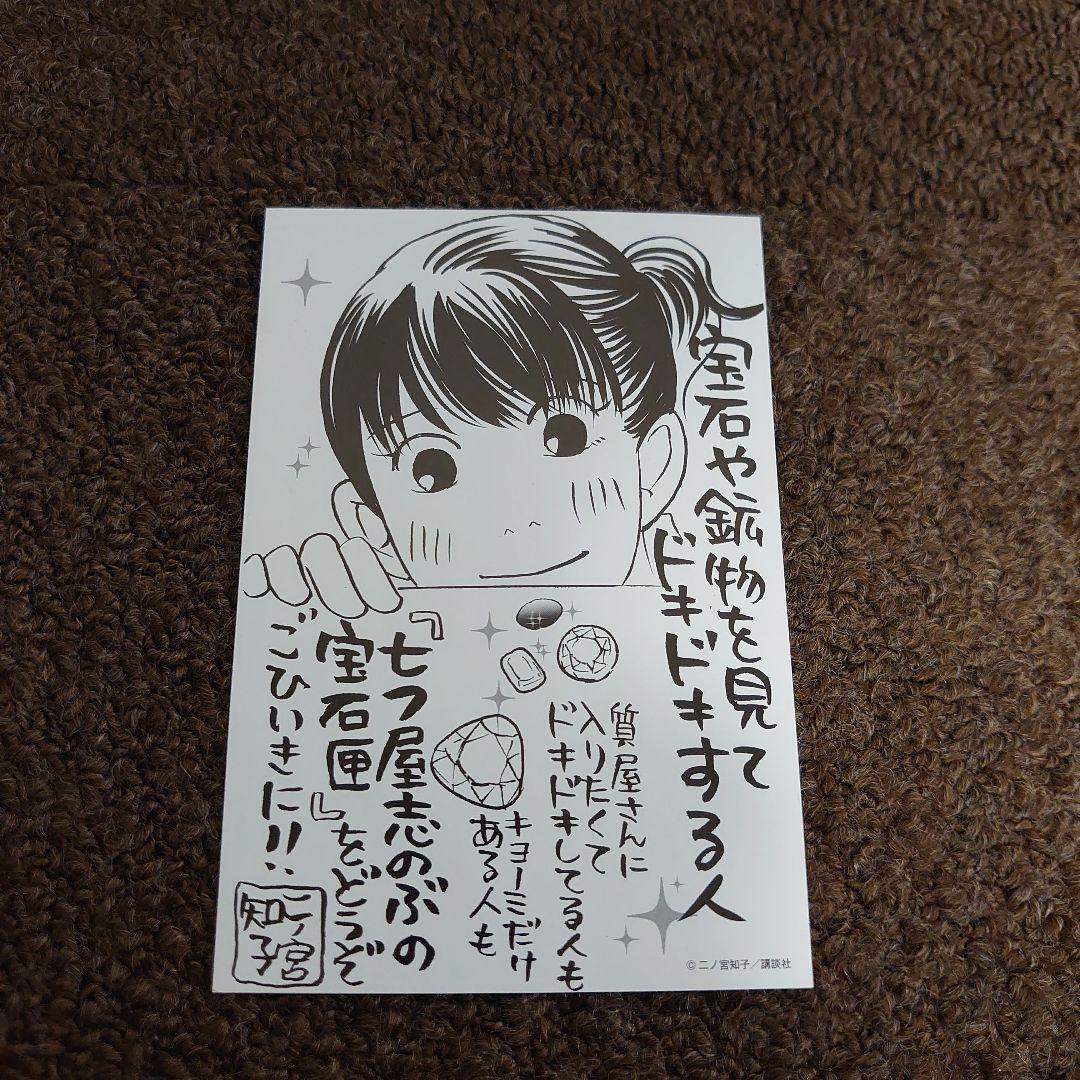 宝石や鉱物を見て
ドキドキする人
質屋さんに
入りたくて
ドキドキしてる人も
キョーミだけ
ある人も
『七つ屋志のぶの
宝石匣』をどうぞ
ごひいきに!!
二ノ宮
知子
©二ノ宮知子/講談社